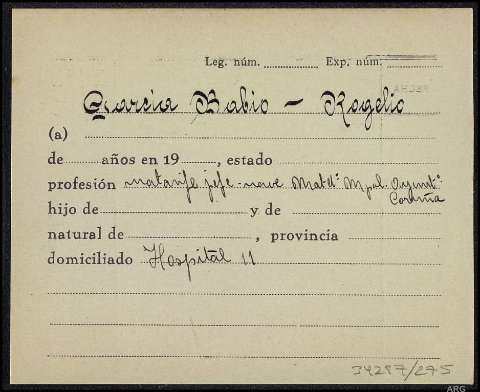 Leg. núm. Exp. núm.
García Babio - Rogelio
(a)
de años en 19, estado
profesión matarife jefe-nave Matdº. Mpal. Ayuntº.
Coruña
hijo de y de
natural de, provincia
domiciliado Hospital 11
34297/275
ARG